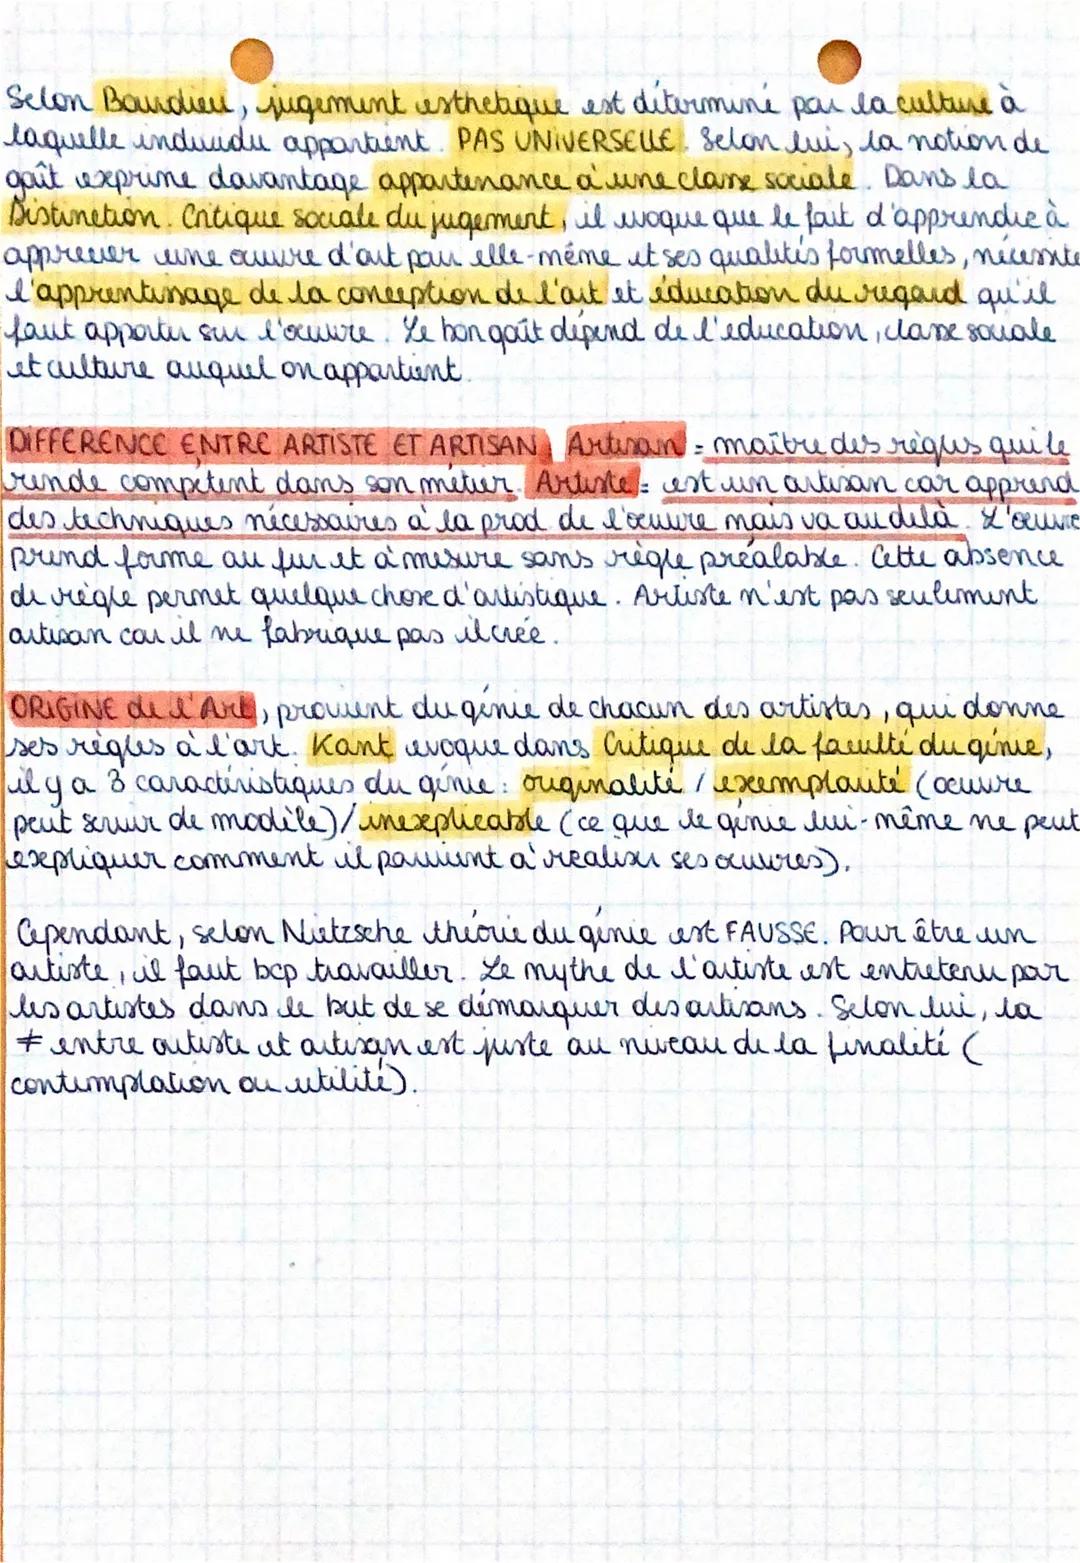 Selon Bourdieu, jugement esthétique est déterminé par la culture à
laquelle individu appartient. PAS UNIVERSELLE. Selon lui, la notion de
goût exprime davantage appartenance à une classe sociale. Dans la
Distinction. Critique sociale du jugement, il évoque que le fait d'apprendre à
apprécier une œuvre d'art pour elle-même et ses qualités formelles, nécessite
l'apprentissage de la conception de l'art et éducation du regard qu'il
faut apporter sur l'œuvre. Le bon goût dépend de l'éducation, classe sociale
et culture auquel on appartient.
DIFFERENCE ENTRE ARTISTE ET ARTISAN, Artisan = maître des règles qui le
rende compétent dans son métier. Artiste = est un artisan car apprend
des techniques nécessaires à la prod de l'œuvre mais va au delà. L'œuvre
prend forme au fur et à mesure sans règle préalable. Cette absence
de règle permet quelque chose d'artistique. Artiste n'est pas seulement
artisan car il ne fabrique pas il crée.
ORIGINE de l'Art, provient du génie de chacun des artistes, qui donne
ses règles à l'art. Kant évoque dans Critique de la faculté du génie,
il y a 3 caractéristiques du génie : originalité / exemplarité (œuvre
peut servir de modèle)/ inexplicable (ce que le génie lui-même ne peut
expliquer comment il parvient à réaliser ses œuvres).
Cependant, selon Nietzsche théorie du génie est FAUSSE. Pour être un
artiste, il faut bcp travailler. Le mythe de l'artiste est entretenu par
les artistes dans le but de se démarquer des artisans. Selon lui, la
≠ entre artiste et artisan est juste au niveau de la finalité (
contemplation ou utilité).